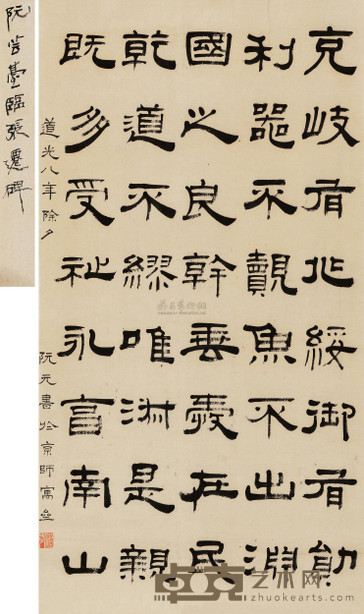 克岐有兆綏御有勛
利器不覿魚不出淵
國之良幹垂愛在民
乾道不繆唯淑是親
既多受祉永享南山
道光八年除夕
阮元書於京師寓
阮芸臺臨張遷碑
卓克艺术网